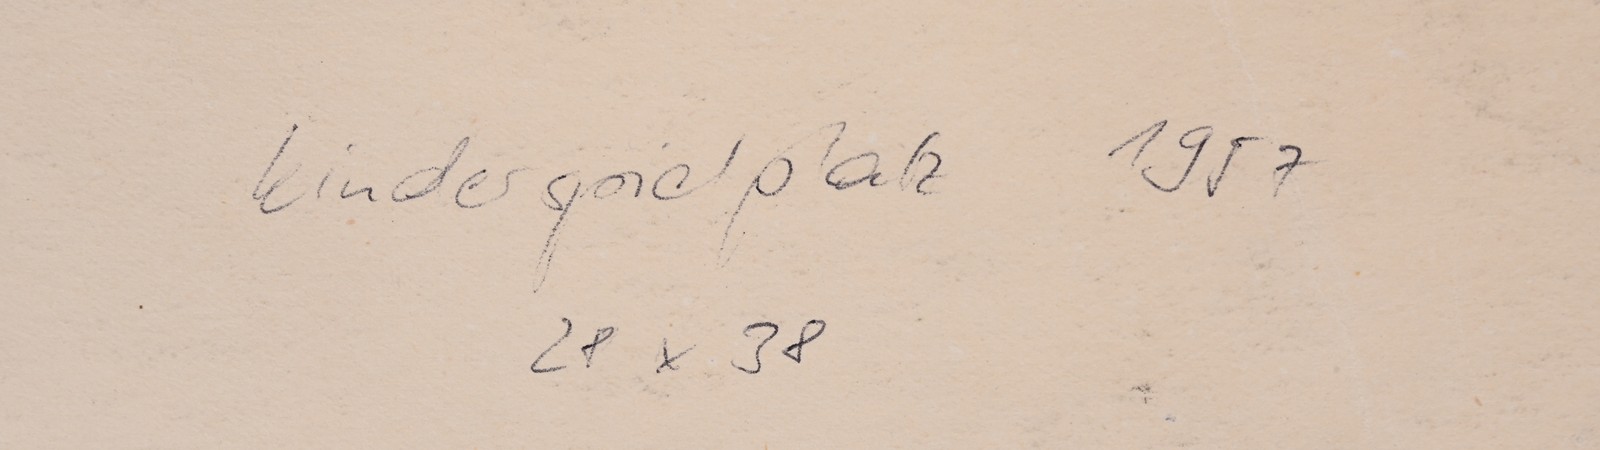 Kinderspielplatz 1957
28 x 38